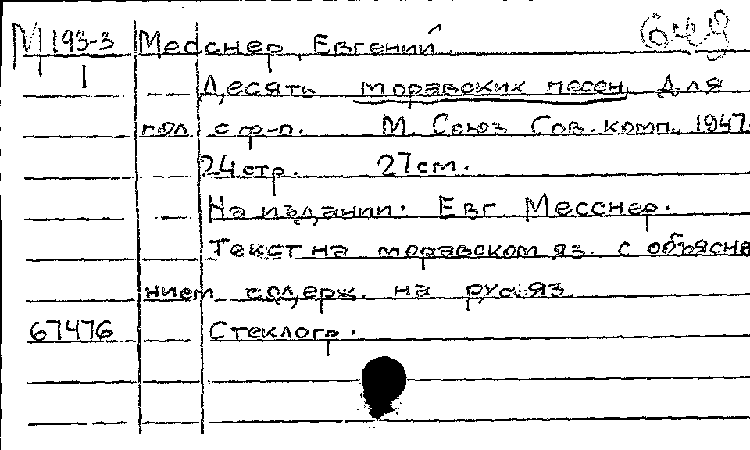 М 193-3 Месснер, Евгений. 648
I Десять моравских песен для
гол. с ф-п. М. Союз Сов. комп., 1947.
24 стр. 27 см.
На издании: Евг. Месснер.
Текст на моравском яз. с объясне
нием содерж. на рус. яз.
67476 Стеклогр.